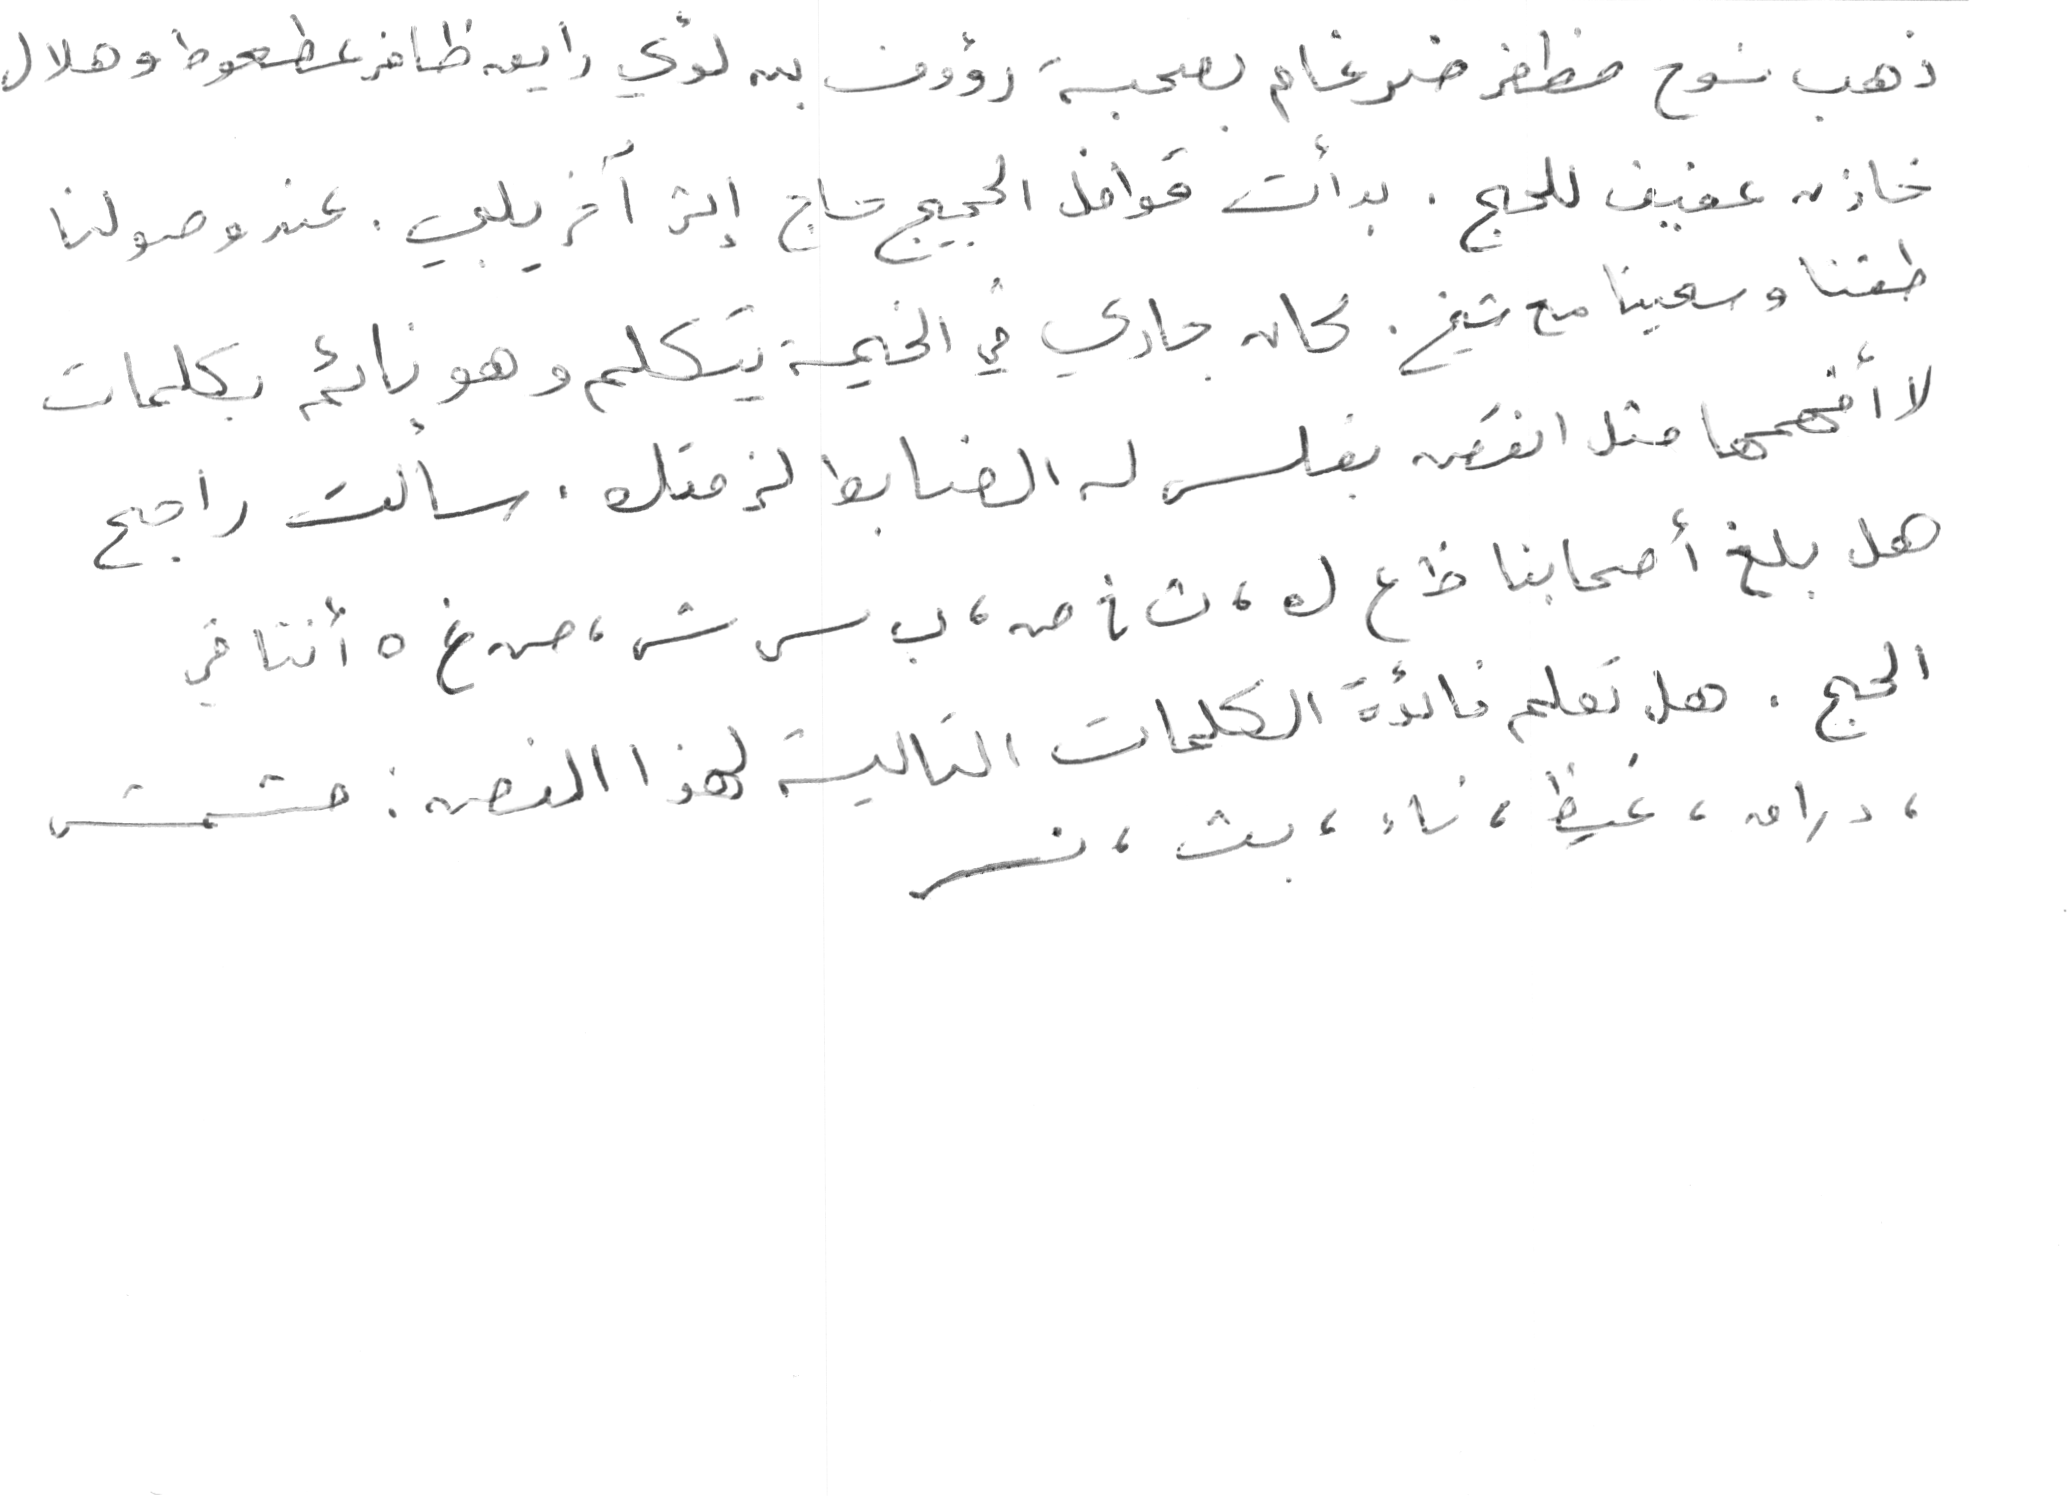 ذهب نوح مظفر ضرغام بصحبة رؤوف بن لؤي رايق ظافر عطعوط وهلال
خازن عفيف للحج . بدأت قوافل الحجيج حاج إثر آخر يلبي . عند وصولنا
طفنا وسعينا مع شيخ . كان جاري في الخيمة يتكلم وهو نائم بكلمات
لا أفهمها مثل انقض بفلس له الضابط لزمتك . سألت راجح
هل بلغ أصحابنا ظ ع ك ، ث خ ص ، ب س ش ، ض غ ه أننا في
الحج . هل تعلم فائدة الكلمات التالية لهذا النص : مشمش
، دراق ، غيظ ، ناء ، بث ، نسر